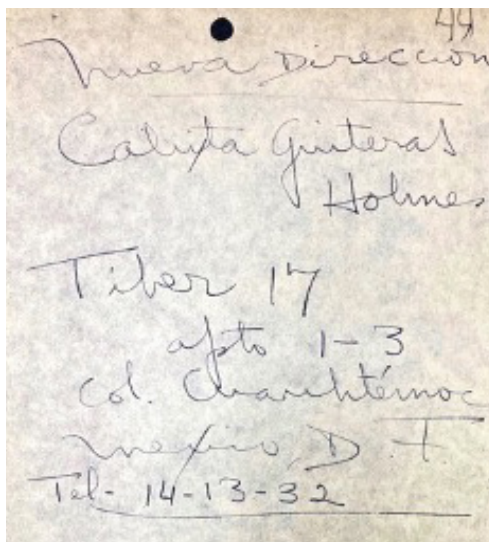 44
Nueva Dirección
Calixta Guiteras
Holmes
Tiber 17
apto 1-3
Col. Cuauhtémoc
Mexico, D. F.
Tel- 14-13-32